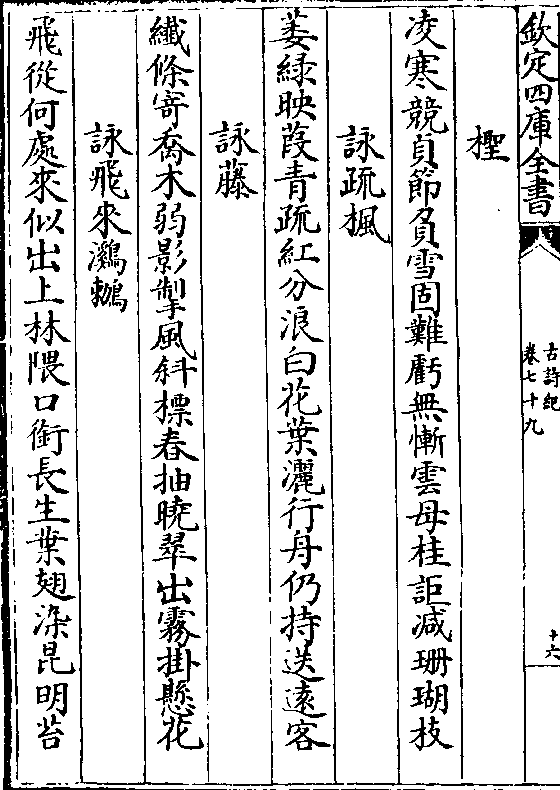 欽定四庫全書
古詩紀
卷七十九
十六
檉
凌寒競貞節負雪固難虧無慚雲母桂詎减珊瑚枝
詠疏楓
萎緑映葭青疏紅分浪白花葉灑行舟仍持送遠客
詠藤
纎條寄喬木弱影掣風斜標春抽曉翠出霧掛懸花
詠飛來鸂鶒
飛從何處來似出上林隈口銜長生葉翅染昆明苔